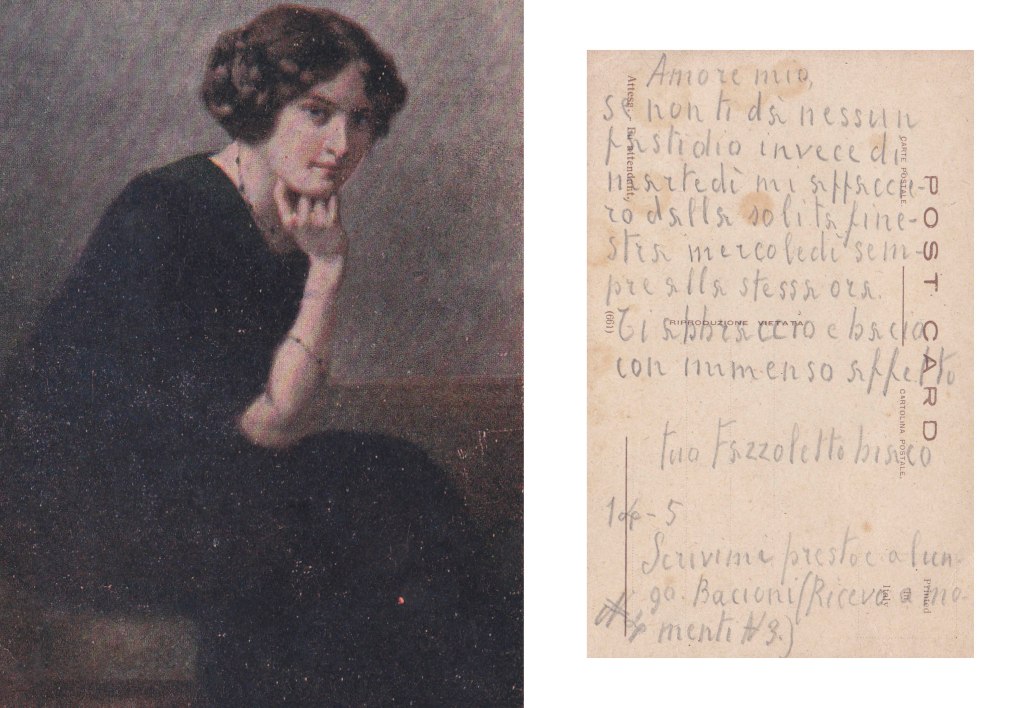 Amore mio,
se non ti da nessun
fastidio invece di
martedì mi affaccie-
rò dalla solita fine-
stra mercoledì sem-
pre alla stessa ora.
Ti abbraccio e bacio
con immenso affetto
tuo Fazzoletto bianco
5
Scrivimi presto e a lun-
go. Bacioni (Ricevo a mo-
menti N 3.)
Attesa. En attendant,
(661)
RIPRODUZIONE VIETATA
CARTE POSTALE
CARTOLINA POSTALE.
POST CARD
Printed
in
Italy